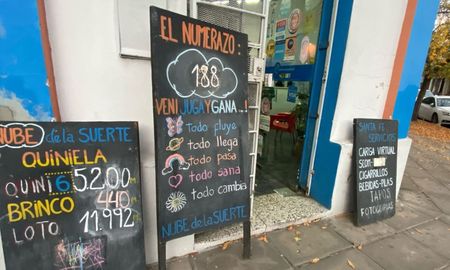 NUBE de la SUERTE
QUINIELA
QUINI 6 5200
BRINCO 440
LOTO 11.992
EL NUMERAZO:
188
VENI JUGA Y GANA...!
todo fluye
todo llega
todo pasa
todo sana
todo cambia
NUBE de la SUERTE
SANTA FE SERVICIOS
CARGA VIRTUAL
CIGARRILLOS
BEBIDAS-PILAS